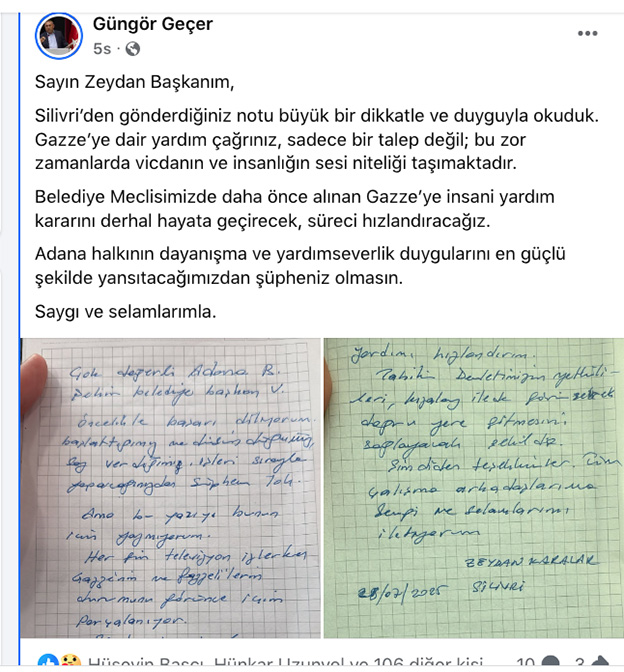 Güngör Geçer
5s
Sayın Zeydan Başkanım,
Silivri’den gönderdiğiniz notu büyük bir dikkatle ve duyguyla okuduk.
Gazze’ye dair yardım çağrınız, sadece bir talep değil; bu zor
zamanlarda vicdanın ve insanlığın sesi niteliği taşımaktadır.
Belediye Meclisimizde daha önce alınan Gazze’ye insani yardım
kararını derhal hayata geçirecek, süreci hızlandıracağız.
Adana halkının dayanışma ve yardımseverlik duygularını en güçlü
şekilde yansıtacağımızdan şüpheniz olmasın.
Saygı ve selamlarımla.
Çok değerli Adana B.
Şehir belediye başkan V.
Öncelikle başarı diliyorum.
başlattığımız ve düşündüğümüz,
Söz verdiğimiz işleri sırayla
yapacağınızdan Şüphem Yok.
Ama bu yazıyı bunun
için yazmıyorum.
Her gün televizyon izlerken
Gazzenin ve Gazzeli'lerin
durumunu görünce içim
Parçalanıyor.
yardımı hızlandırın.
Tabiki Devletimizin yetkili-
leri, kızılay ile görüşerek
doğru yere gitmesini
sağlayacak şekilde.
Şimdiden teşekkürler. Tüm
çalışma arkadaşlarıma
Sevgi ve selamlarımı
iletiyorum
ZEYDAN KARALAR
28/07/2025 SİLİVRİ
Hüseyin Başcı, Hünkar Uzunyol ve 106 diğer kişi 10 3